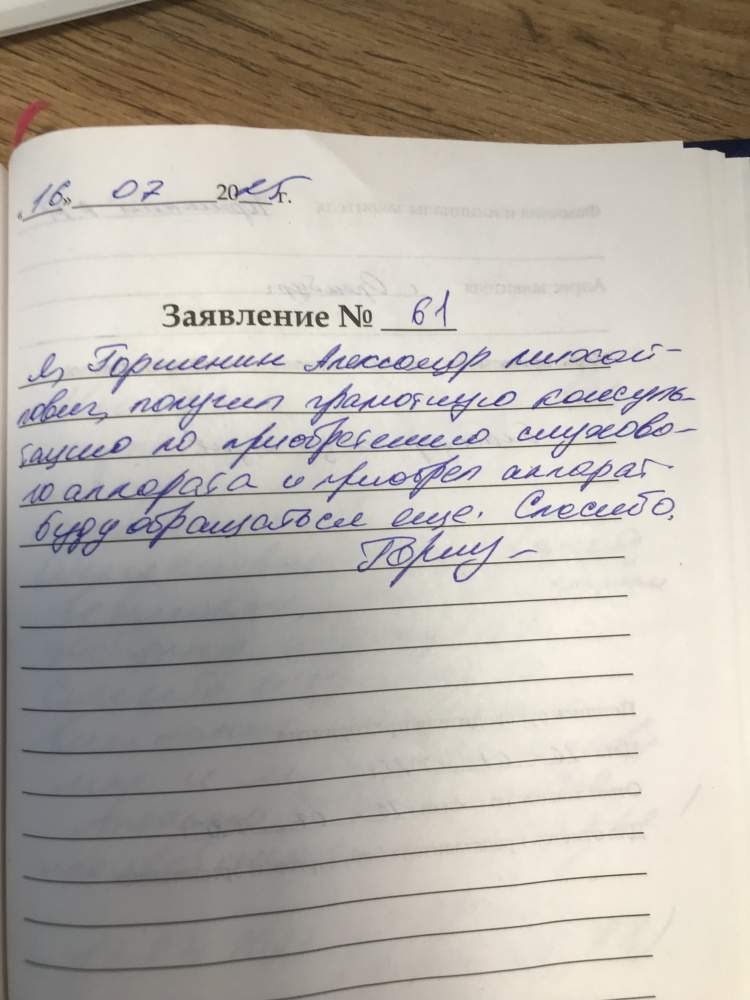 «16» 07 2025 г.
Заявление № 61
Я, Горшенин Александр Михай-
лович, получил грамотную консуль-
тацию по приобретению слухово-
го аппарата и приобрел аппарат.
Буду обращаться еще. Спасибо.